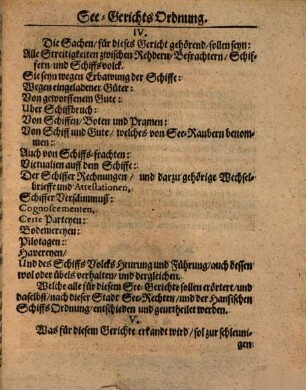 See-Gerichts Ordnung.
IV.
Die Sachen/ für dieses Gericht gehörend/ sollen seyn:
Alle Streitigkeiten zwischen Rehdern/ Befrachtern/ Schif-
fern/ und Schiffsvolck.
Sie seyn wegen Erbawung der Schiffe:
Wegen eingeladener Güter:
Von geworffenem Gute:
Uber Schiffbruch:
Von Schiffen/ Boten und Pramen:
Von Schiff und Gute/ welches von See-Raubern benom-
men:
Auch von Schiffs-frachten:
Victualien auff dem Schiffe:
Der Schiffer Rechnungen/ und darzu gehörige Wechsel-
brieffe und Attestationen,
Schiffer Versäumnüß:
Cognoscementen,
Certe Parteyen:
Bodemereyen:
Pilotagen:
Havereyen/
Und des Schiffs Volcks Heurung und Führung/ auch dessen
wol oder übels verhalten/ und dergleichen.
Welche alle für diesem See-Gerichte sollen erörtert/ und
daselbst/ nach dieser Stadt See-Rechten/ und der Hansischen
Schiffs Ordnung/ entschieden und geurtheilet werden.
V.
Was für diesem Gerichte erkandt wird/ sol zur schleuni-
gen